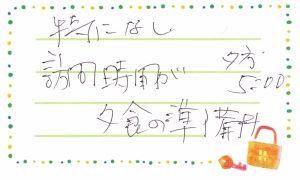 特になし
訪問時間が 夕方
5:00
夕食の準備